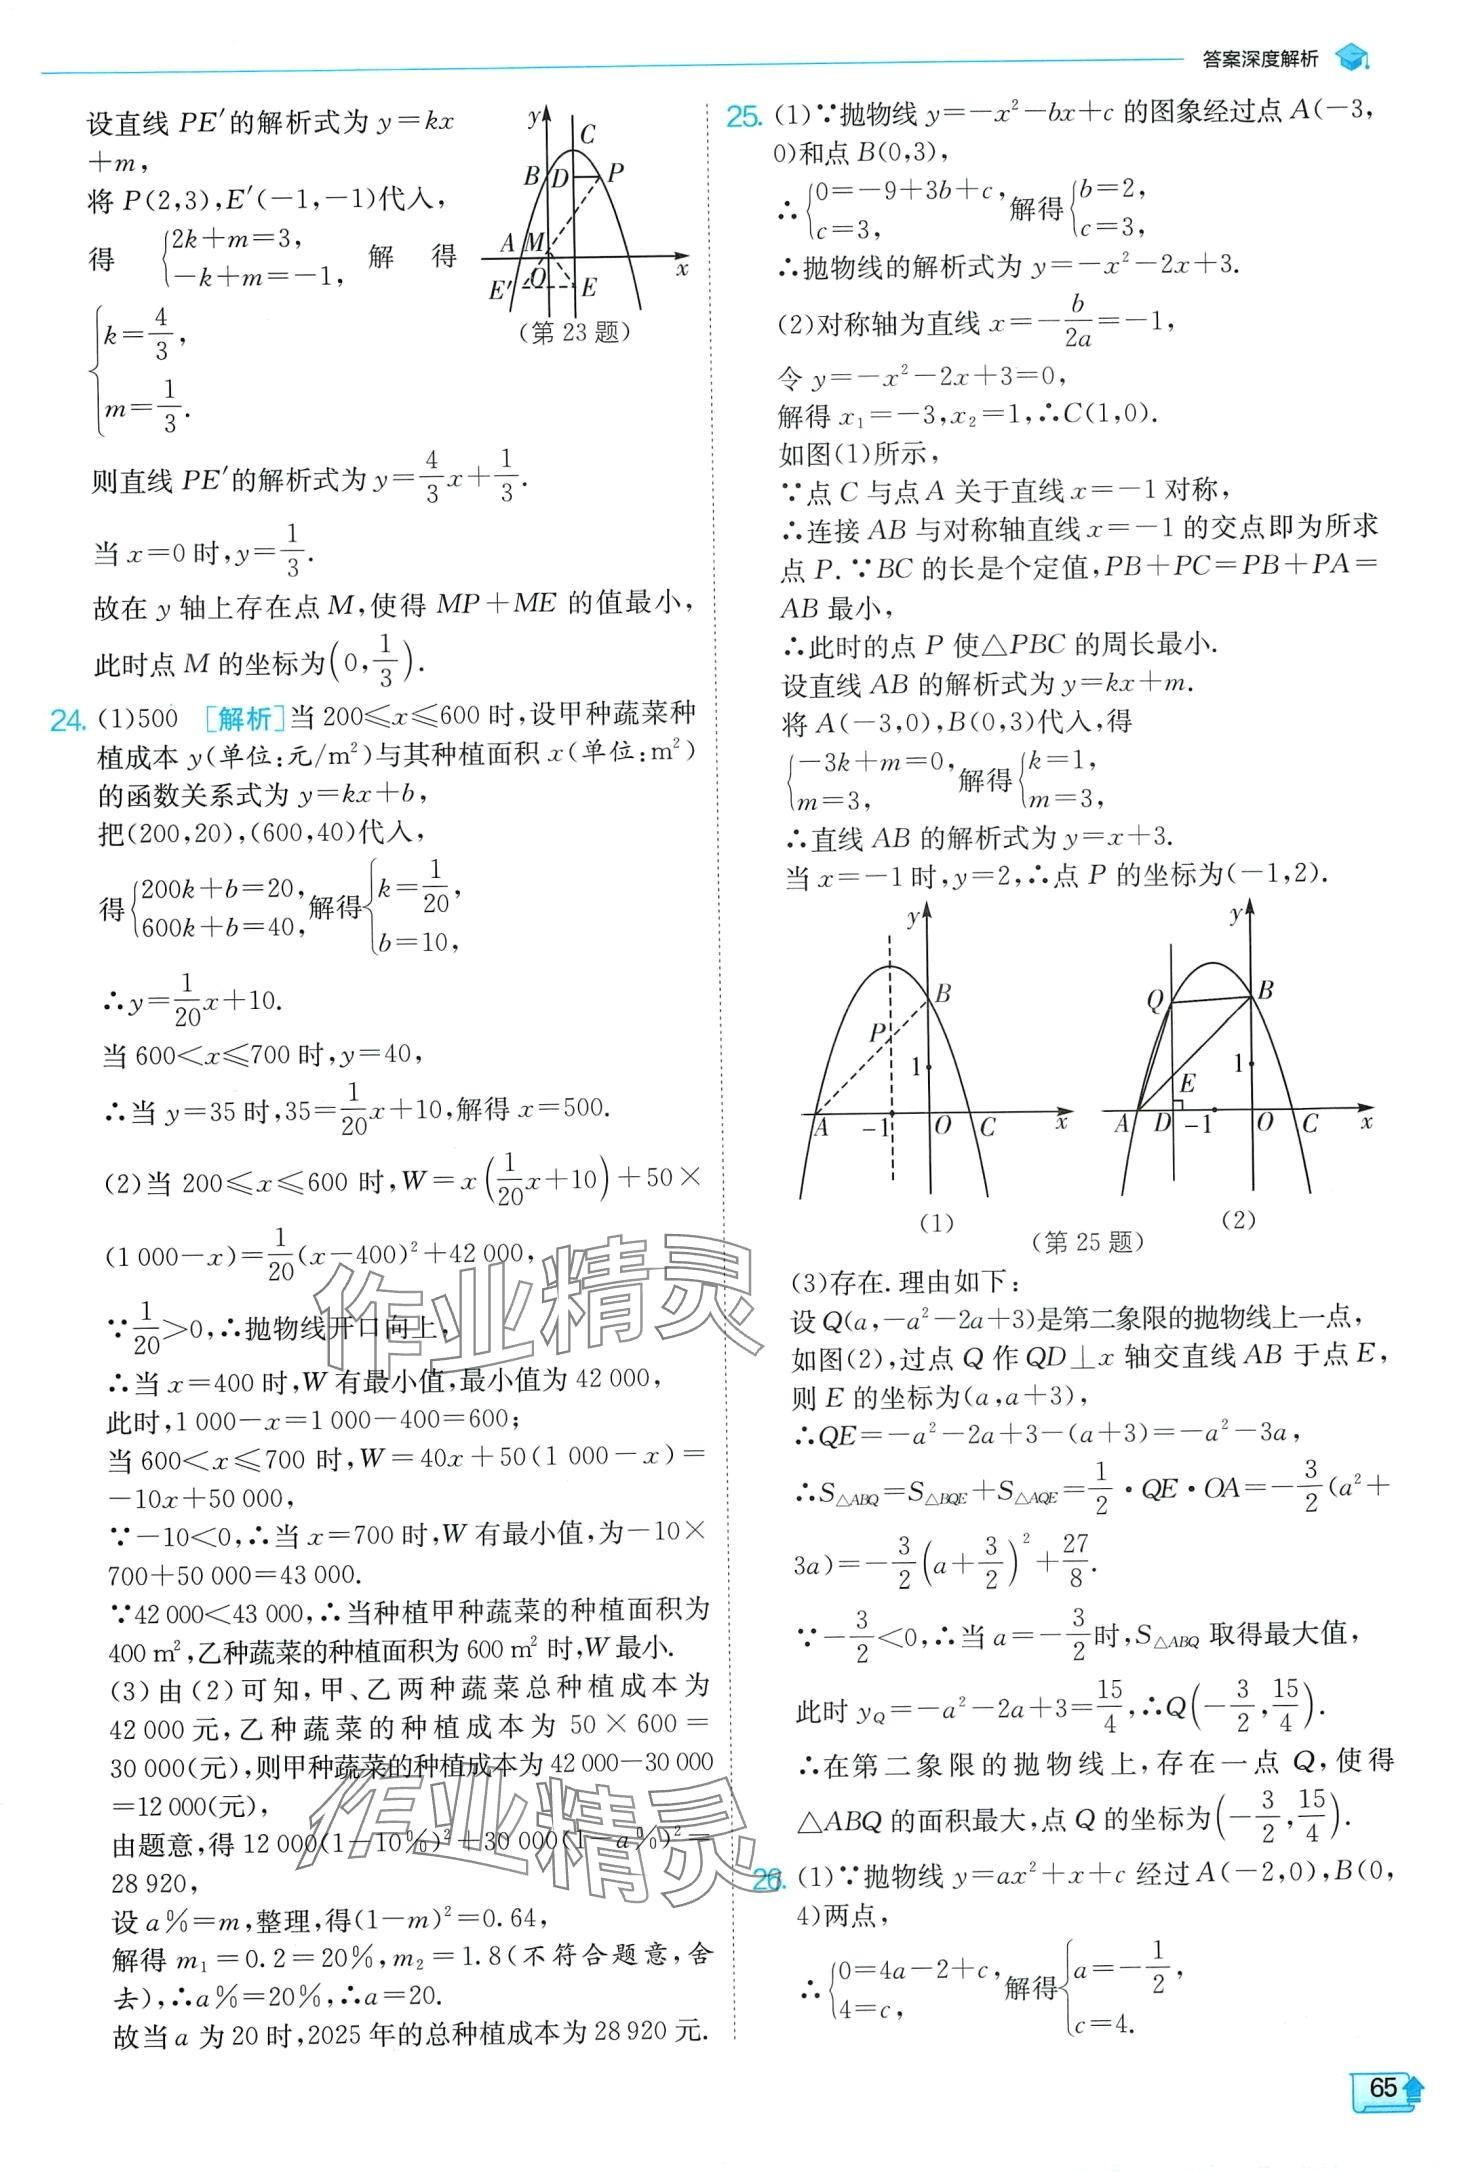 答案深度解析
设直线 PE′的解析式为 y=kx
+m,
将 P(2,3),E′(-1,-1)代入,
得 {2k+m=3, -k+m=-1, 解 得
{k=4/3, m=1/3.
y
C
B
D
P
A
M
O
x
E′
E
(第 23 题)
则直线 PE′的解析式为 y=4/3x+1/3.
当 x=0 时,y=1/3.
故在 y 轴上存在点 M,使得 MP+ME 的值最小,
此时点 M 的坐标为(0,1/3).
24. (1)500 [解析]当 200≤x≤600 时,设甲种蔬菜种
植成本 y(单位:元/m²)与其种植面积 x(单位:m²)
的函数关系式为 y=kx+b,
把(200,20),(600,40)代入,
得{200k+b=20, 600k+b=40, 解得{k=1/20, b=10,
∴y=1/20x+10.
当 600<x≤700 时,y=40,
∴当 y=35 时,35=1/20x+10,解得 x=500.
(2)当 200≤x≤600 时,W=x(1/20x+10)+50×
(1 000-x)=1/20(x-400)²+42 000,
∵1/20>0,∴抛物线开口向上,
∴当 x=400 时,W 有最小值,最小值为 42 000,
此时,1 000-x=1 000-400=600;
当 600<x≤700 时,W=40x+50(1 000-x)=
-10x+50 000,
∵-10<0,∴当 x=700 时,W 有最小值,为-10×
700+50 000=43 000.
∵42 000<43 000,∴当种植甲种蔬菜的种植面积为
400 m²,乙种蔬菜的种植面积为 600 m² 时,W 最小.
(3)由(2)可知,甲、乙两种蔬菜总种植成本为
42 000 元,乙种蔬菜的种植成本为 50×600=
30 000(元),则甲种蔬菜的种植成本为 42 000-30 000
=12 000(元),
由题意,得 12 000(1-10%)²+30 000(1-a%)²=
28 920,
设 a%=m,整理,得(1-m)²=0.64,
解得 m₁=0.2=20%,m₂=1.8(不符合题意,舍
去),∴a%=20%,∴a=20.
故当 a 为 20 时,2025 年的总种植成本为 28 920 元.
25. (1)∵抛物线 y=-x²-bx+c 的图象经过点 A(-3,
0)和点 B(0,3),
∴{0=-9+3b+c, c=3, 解得{b=2, c=3,
∴抛物线的解析式为 y=-x²-2x+3.
(2)对称轴为直线 x=-b/2a=-1,
令 y=-x²-2x+3=0,
解得 x₁=-3,x₂=1,∴C(1,0).
如图(1)所示,
∵点 C 与点 A 关于直线 x=-1 对称,
∴连接 AB 与对称轴直线 x=-1 的交点即为所求
点 P.∵BC 的长是个定值,PB+PC=PB+PA=
AB 最小,
∴此时的点 P 使△PBC 的周长最小.
设直线 AB 的解析式为 y=kx+m.
将 A(-3,0),B(0,3)代入,得
{-3k+m=0, m=3, 解得{k=1, m=3,
∴直线 AB 的解析式为 y=x+3.
当 x=-1 时,y=2,∴点 P 的坐标为(-1,2).
y
B
P
1
A
-1
O
C
x
(1)
y
Q
B
1
E
A
D
-1
O
C
x
(2)
(第 25 题)
(3)存在.理由如下:
设 Q(a,-a²-2a+3)是第二象限的抛物线上一点,
如图(2),过点 Q 作 QD⊥x 轴交直线 AB 于点 E,
则 E 的坐标为(a,a+3),
∴QE=-a²-2a+3-(a+3)=-a²-3a,
∴S△ABQ=S△BQE+S△AQE=1/2·QE·OA=-3/2(a²+
3a)=-3/2(a+3/2)²+27/8.
∵-3/2<0,∴当 a=-3/2时,S△ABQ 取得最大值,
此时 yQ=-a²-2a+3=15/4,∴Q(-3/2,15/4).
∴在第二象限的抛物线上,存在一点 Q,使得
△ABQ 的面积最大,点 Q 的坐标为(-3/2,15/4).
26. (1)∵抛物线 y=ax²+x+c 经过 A(-2,0),B(0,
4)两点,
∴{0=4a-2+c, 4=c, 解得{a=-1/2, c=4.
作业精灵
作业精灵
65